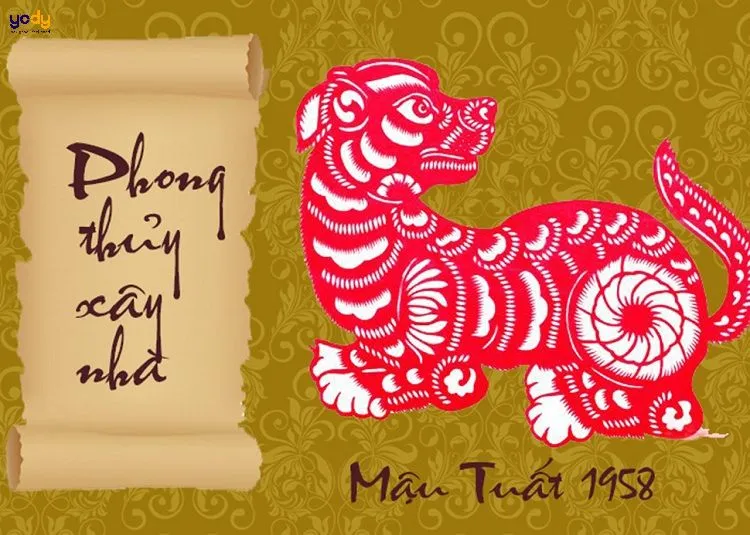 yody
Phong
thủy
xây
nhà
Mậu Tuất 1958